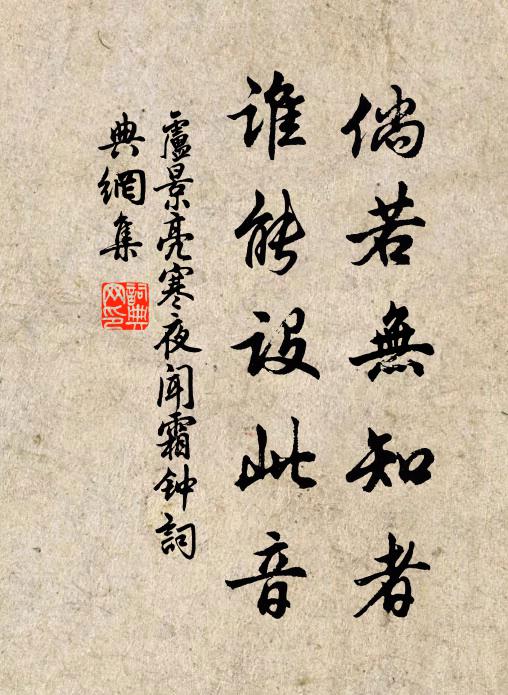 倘若無知者
誰能設此音
盧景亮寒夜聞霜钟詞
典網集
詞典
网印